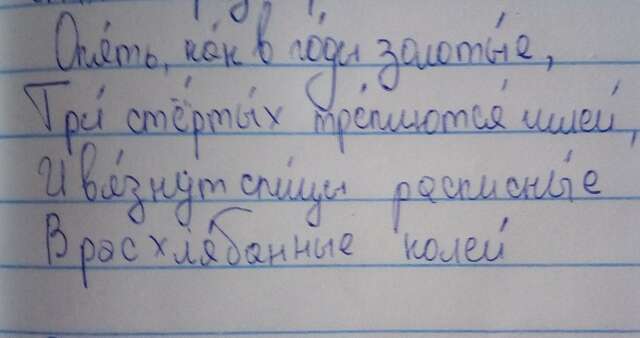 Опя́ть, ка́к в го́ды золоты́е,
Три́ стёрты́х тре́плются́ шлеи́,
И вя́знут спи́цы расписны́е
В расхля́банные колеи́